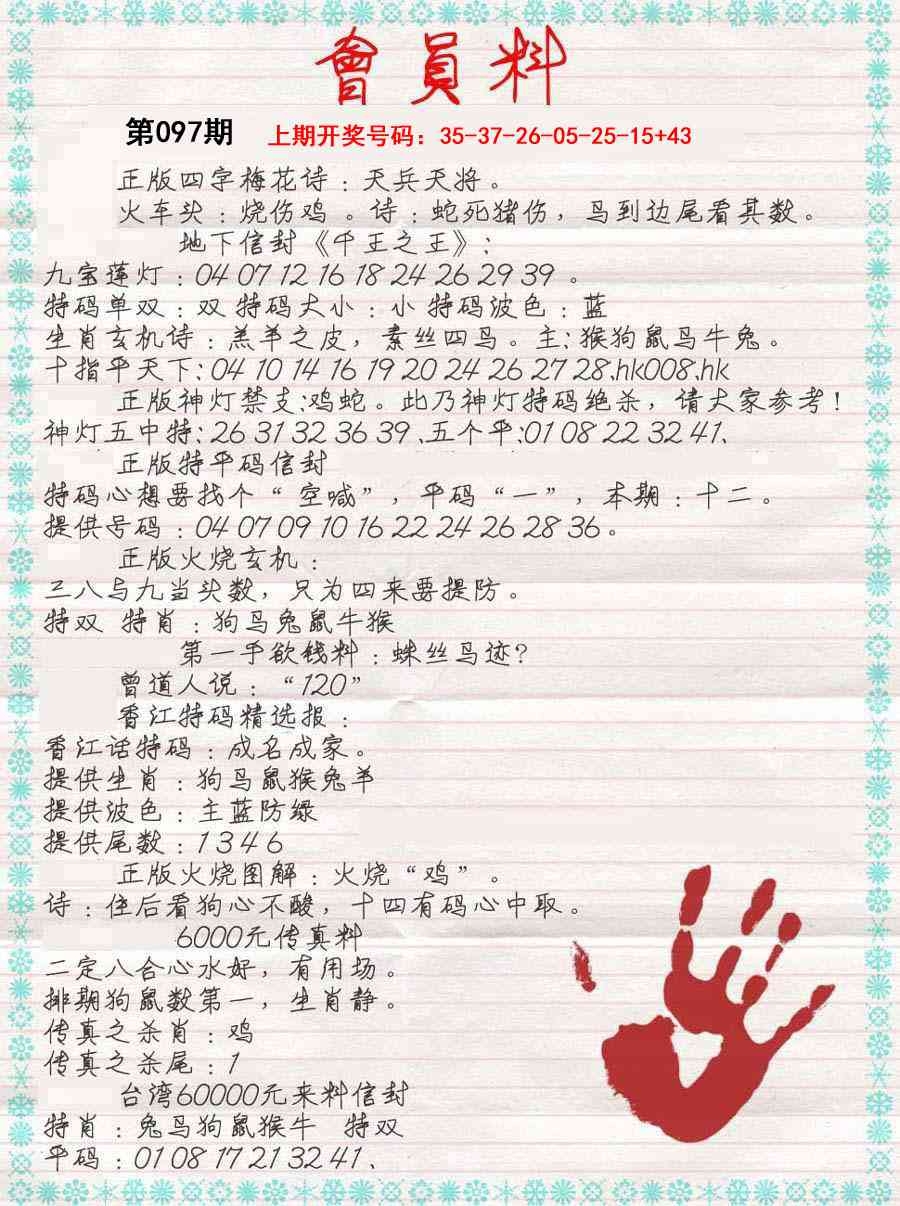 會員料
第097期 上期开奖号码：35-37-26-05-25-15+43
正版四字梅花诗：天兵天将。
火车头：烧伤鸡 。诗：蛇死猪伤，鸟到边尾看其数。
地下信封《千王之王》：
九宝莲灯：04 07 12 16 18 24 26 29 39 。
特码单双：双 特码大小：小 特码波色：蓝
生肖玄机诗：羔羊之皮，素丝四马。主：猴狗鼠马牛兔。
十指平天下：04 10 14 16 19 20 24 26 27 28.hk008.hk
正版神灯禁支：鸡蛇。此乃神灯特码绝杀，请大家参考！
神灯五中特：26 31 32 36 39 、五个平：01 08 22 32 41、
正版特平码信封
特码心想要找个“空喊”，平码“一”，本期：十二。
提供号码：04 07 09 10 16 22 24 26 28 36。
正版火烧玄机：
三八与九当头数，只为四来要提防。
特双 特肖：狗马兔鼠牛猴
第一手欲钱料：蛛丝马迹？
曾道人说：“120”
香江特码精选报：
香江话特码：成名成家。
提供生肖：狗马鼠猴兔羊
提供波色：主蓝防绿
提供尾数：1 3 4 6
正版火烧图解：火烧“鸡”。
诗：住后看狗心不酸，十四有码心中取。
6000元传真料
二定八合心水好，有用场。
排期狗鼠数第一，生肖静。
传真之杀肖：鸡
传真之杀尾：1
台湾60000元来料信封
特肖：兔马狗鼠猴牛 特双
平码：01 08 17 21 32 41、